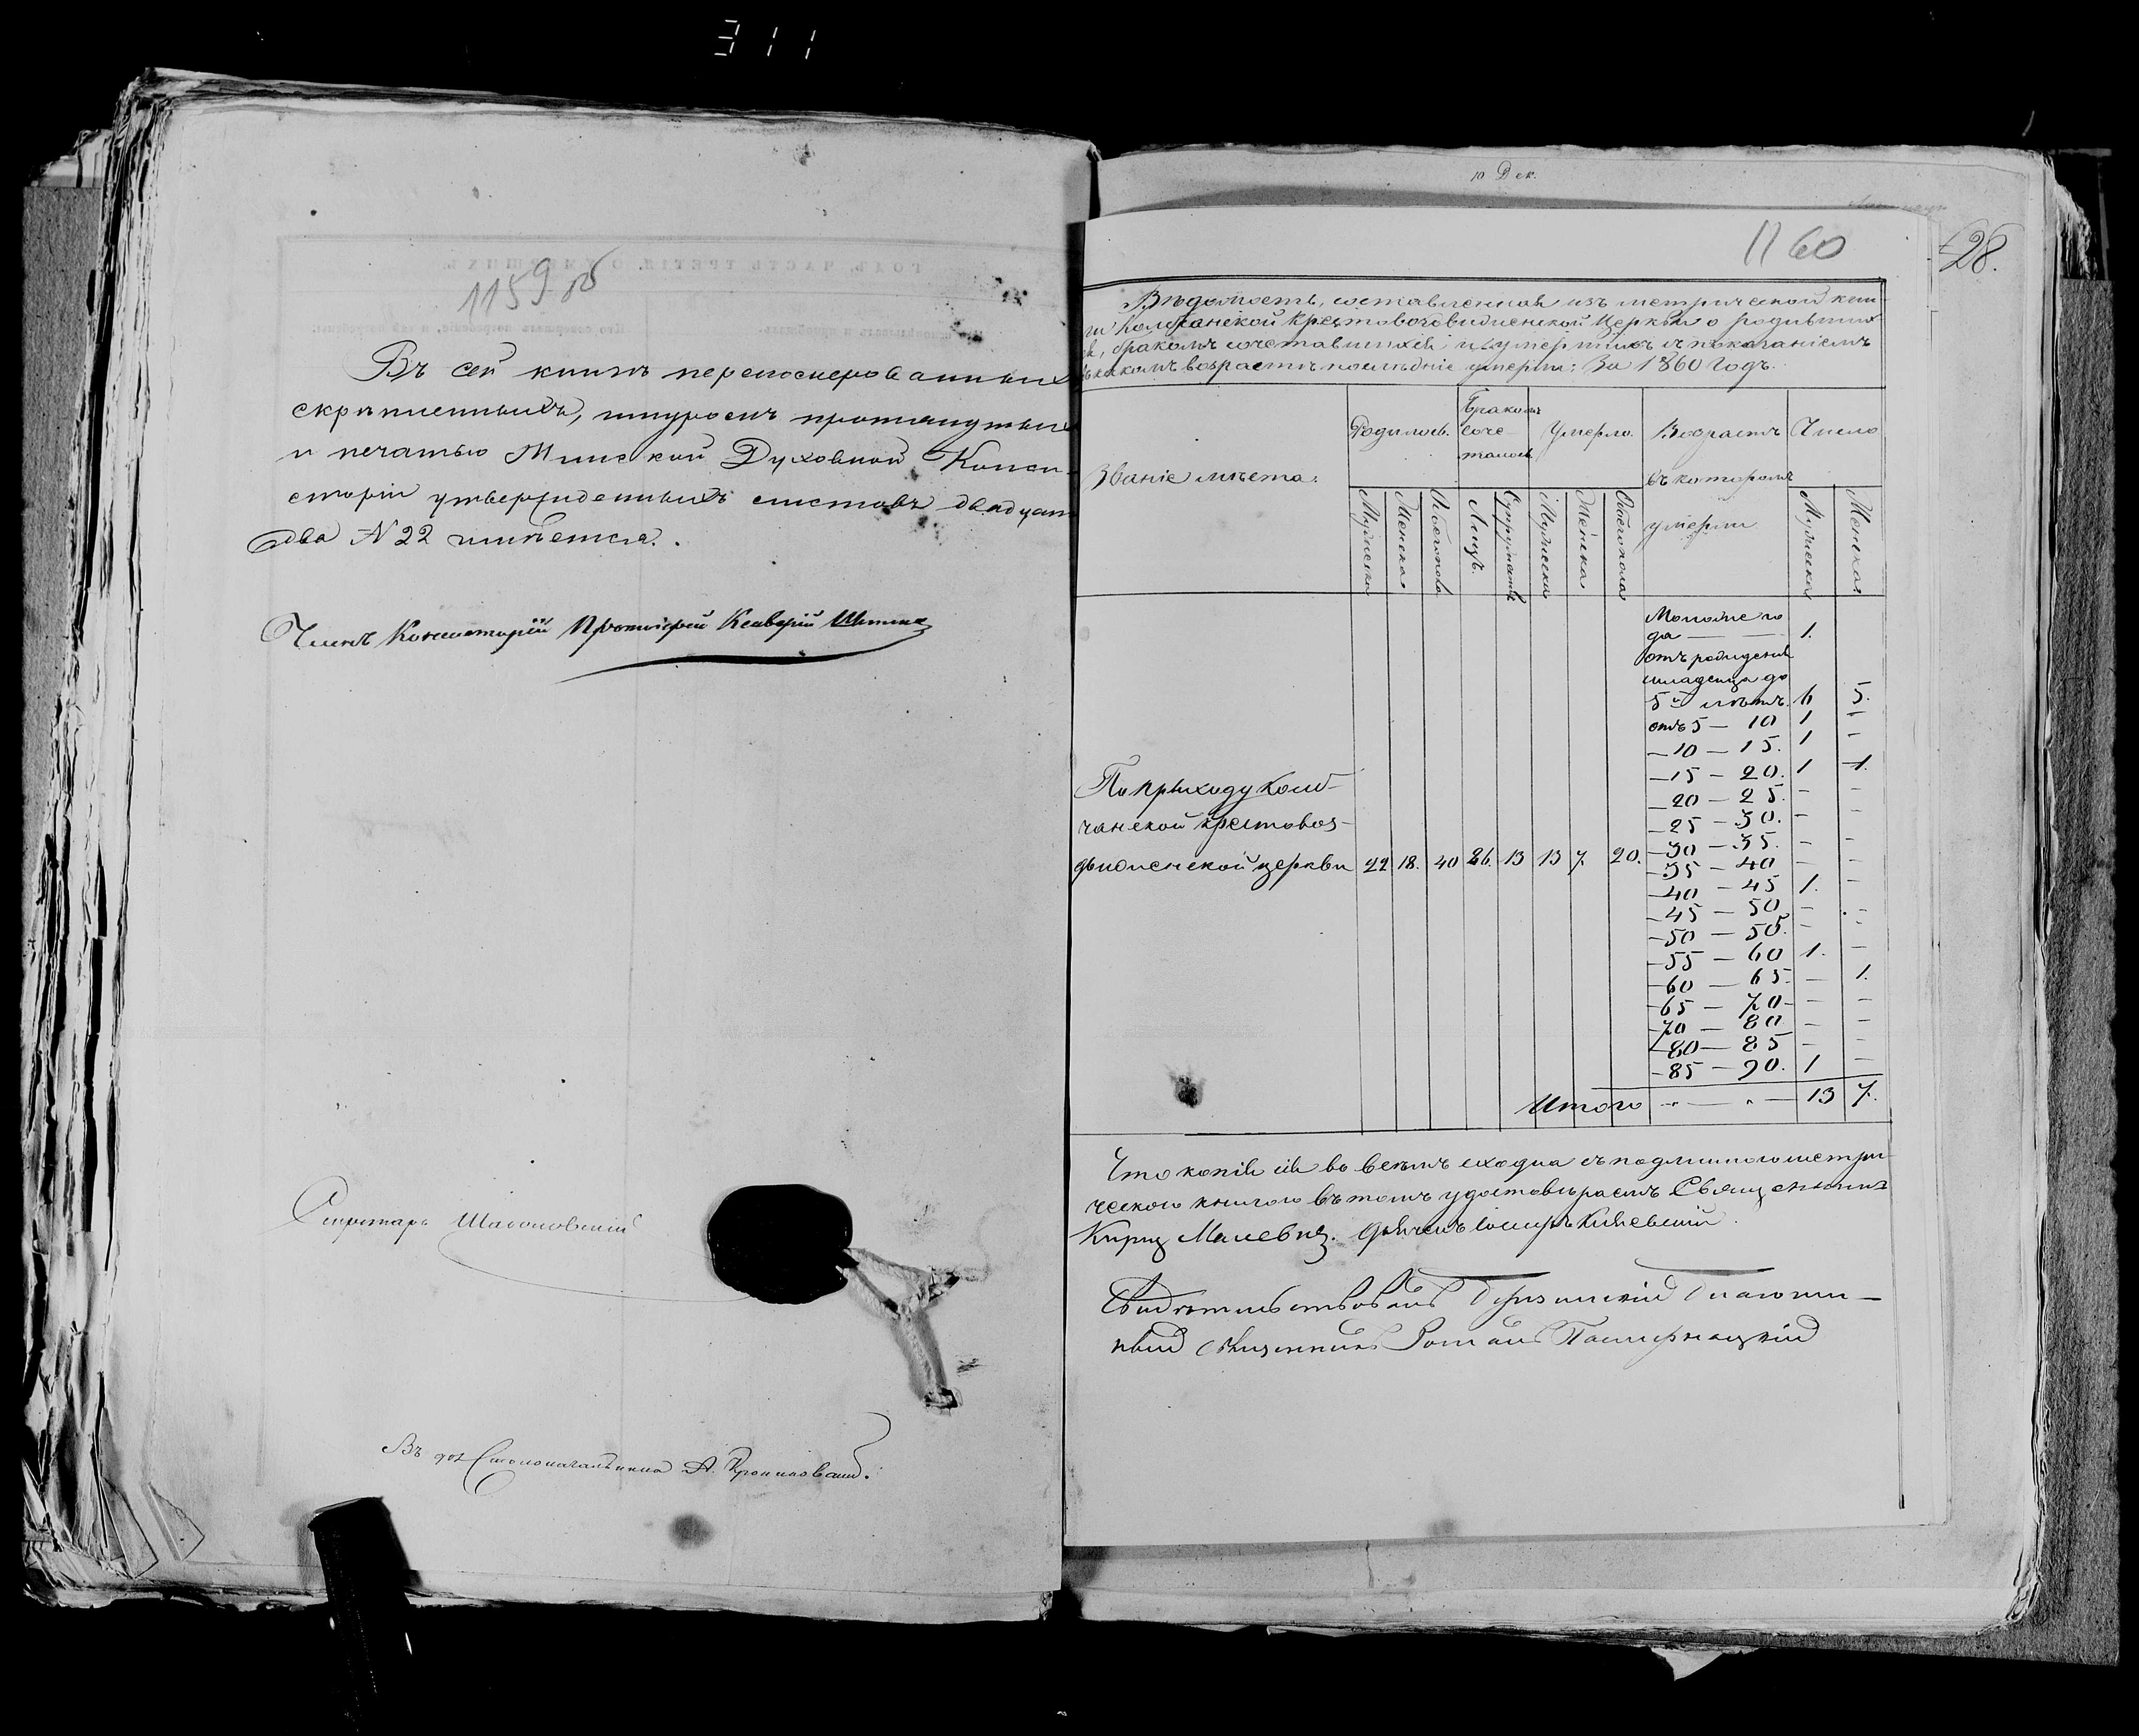 311
1159 об
Въ сей книгѣ перенумерованныхъ
скрѣпленныхъ, шнуромъ протянутыхъ
и печатью Минской Духовной Конси-
сторіи утвержденныхъ листовъ двадцать
два N 22 имѣется.
Членъ Консисторіи Протоіерей Ксаверій
Секретарь
Въ дол. Столоначальника А.
10 Дек.
1160
28.
Вѣдомость, составленная изъ метрической кни-
ги Колчанской Крестовоздвиженской Церкви о родивших
ся, бракомъ сочетавшихся и умершихъ съ показаніемъ
въ какомъ возрастѣ послѣдніе умерли: За 1860 Годъ.
Званіе мѣста.
Родилось.
Бракомъ
соче-
талось
Умерло.
Возрастъ
въ которомъ
умерли
Число
Мужеска
Женска
Обоего пола
Лицъ.
Супружествъ
Мужеска
Женска
Обоего пола
Мужеска
Женска
Моложе го
да — 1.
отъ рожденія
младенца до
5и лѣтъ. 6 5.
отъ 5 — 10 1 —
— 10 — 15. 1 —
— 15 — 20. 1 1.
— 20 — 25. — —
— 25 — 30. — —
— 30 — 35. — —
— 35 — 40 — —
— 40 — 45 1. —
— 45 — 50 — —
— 50 — 55. — —
— 55 — 60 1. —
— 60 — 65. — 1.
— 65 — 70 — —
— 70 — 80 — —
— 80 — 85 — —
— 85 — 90. 1 —
По приходу Кол-
чанской крестовоз-
движенской церкви 22 18. 40 26. 13 13 7. 20.
Итого 13 7.
Что копія сія во всемъ сходна съ подлинною метри-
ческою книгою въ томъ удостовѣряемъ Священникъ
Кириллъ Малевич. Дьячекъ
Свидѣтельствовалъ Благочин-
ный Священникъ Романъ